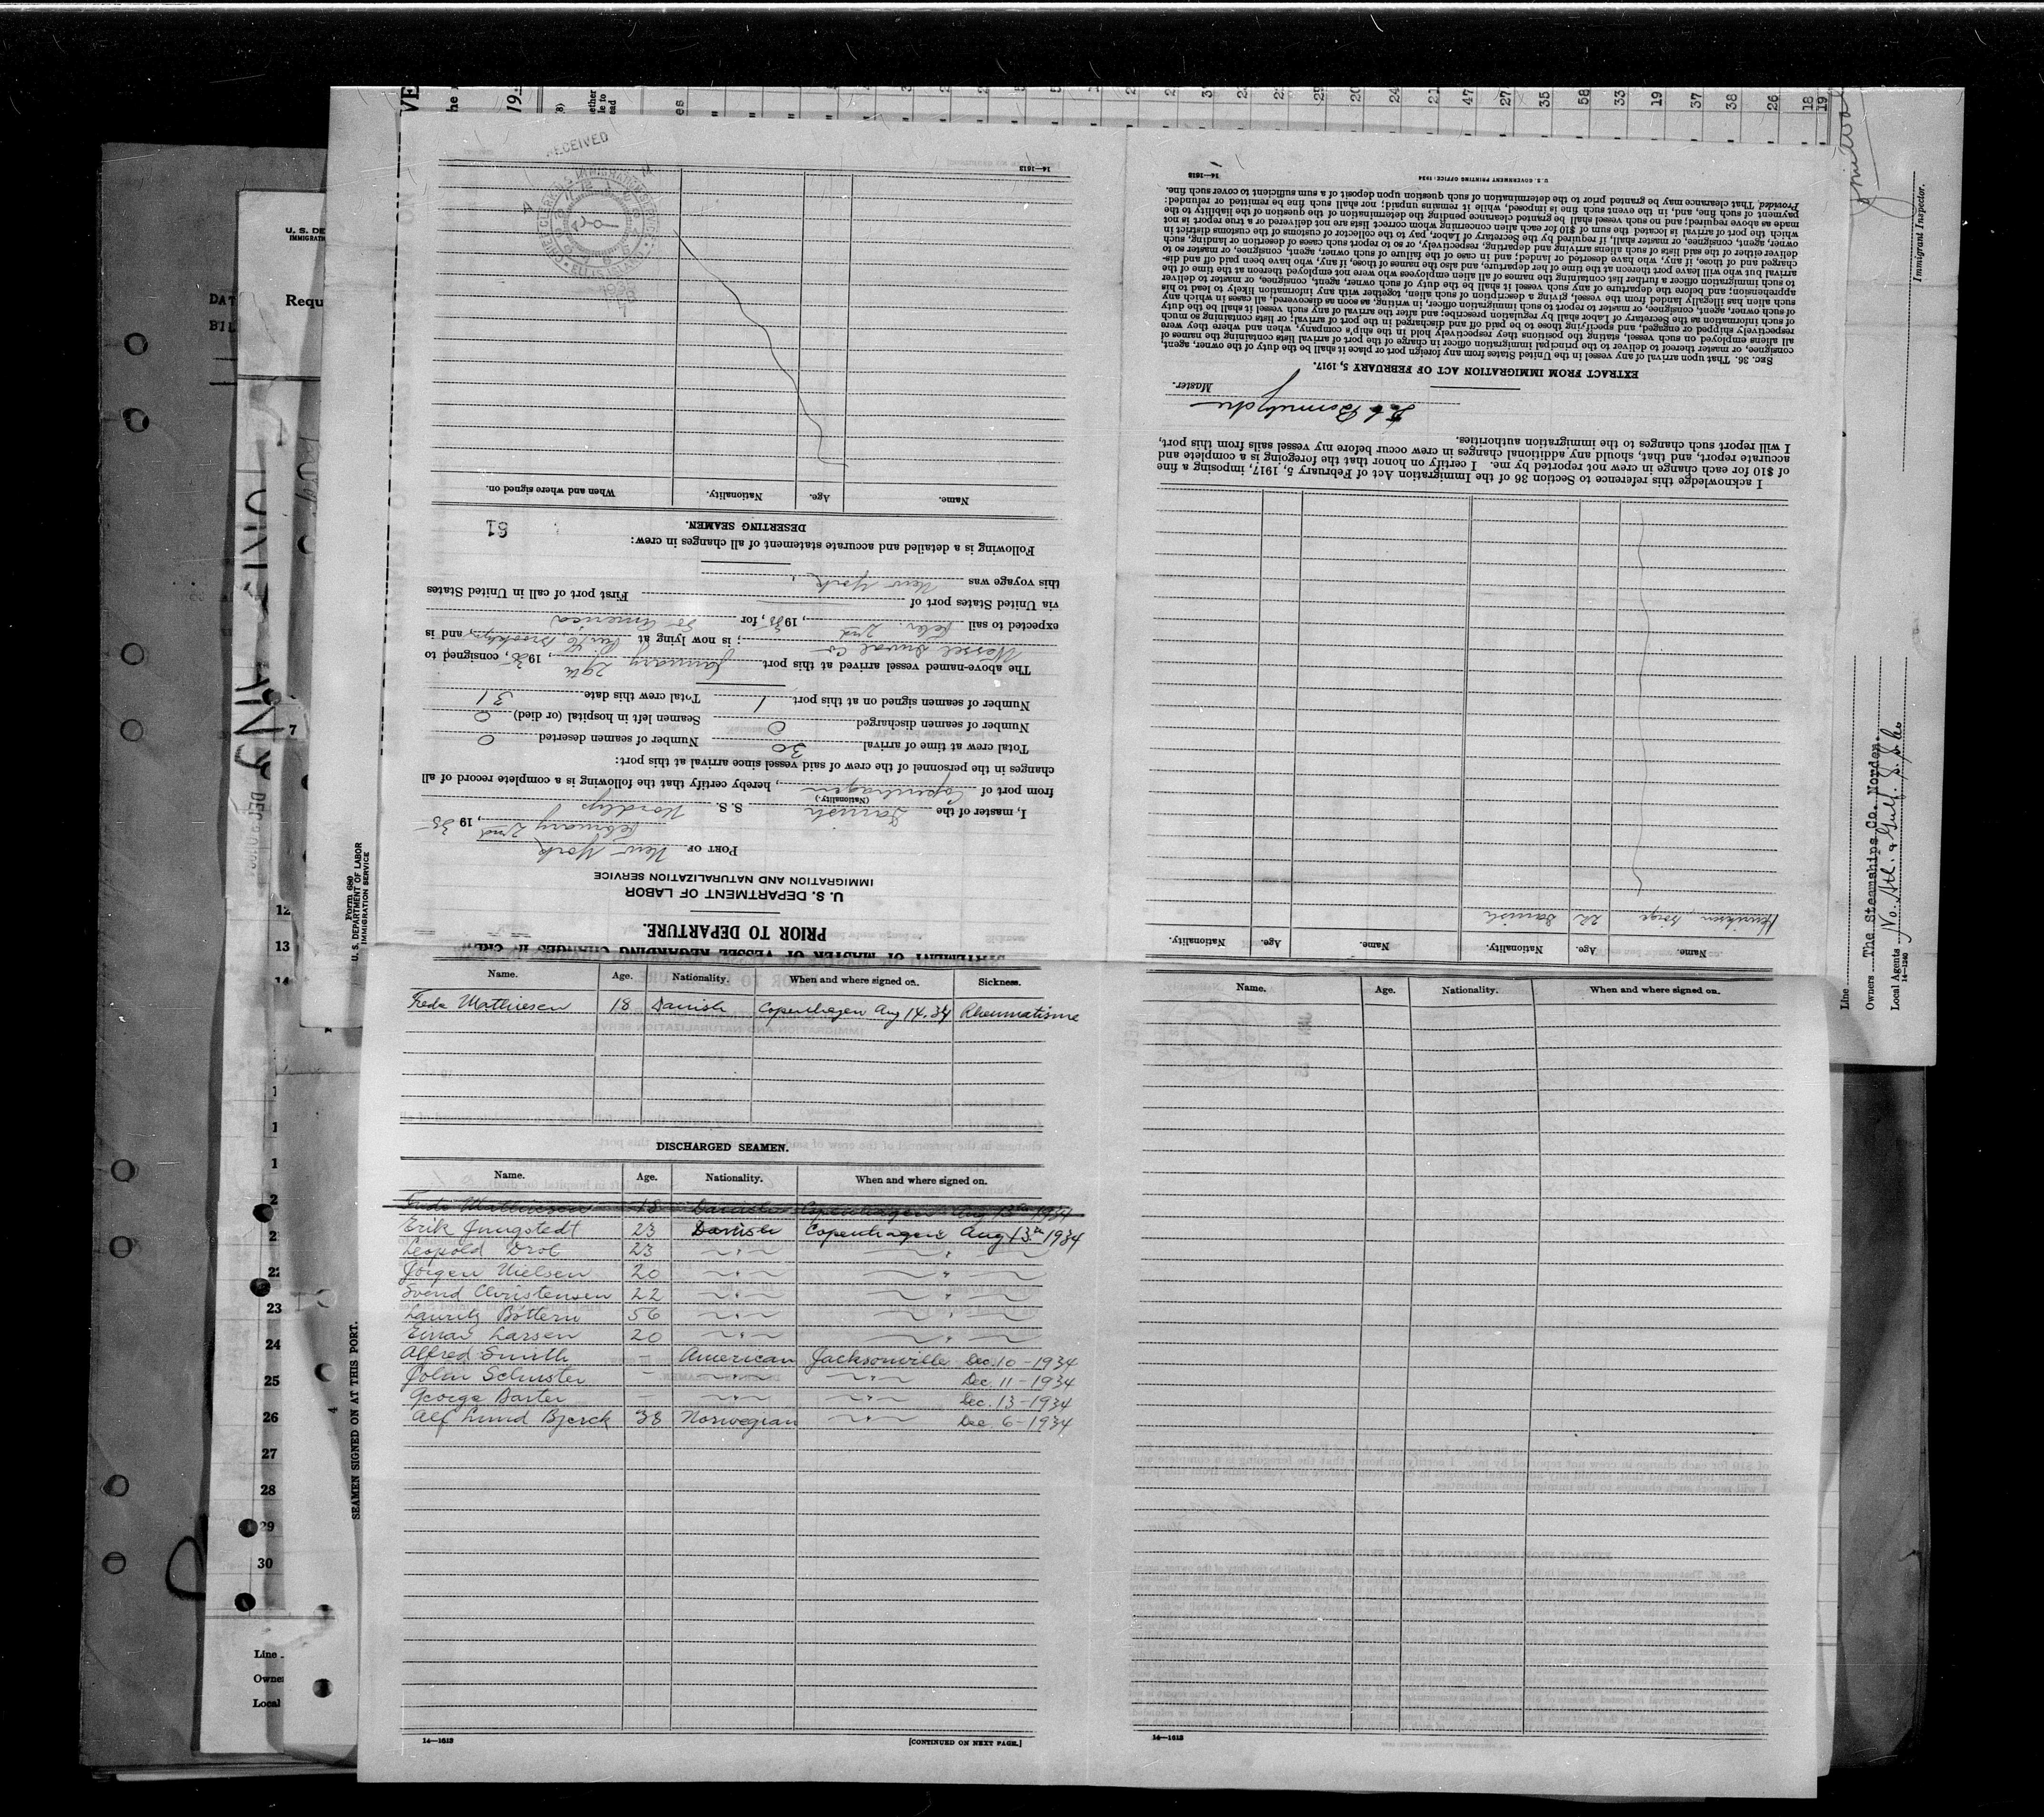 STATEMENT OF MASTER OF VESSEL REGARDING CHANGES IN CREW
PRIOR TO DEPARTURE.
U. S. DEPARTMENT OF LABOR
IMMIGRATION AND NATURALIZATION SERVICE
PORT OF New York
February 2nd, 1935
I, master of the Danish S. S. Nordlys
(Nationality.)
from port of Copenhagen, hereby certify that the following is a complete record of all
changes in the personnel of the crew of said vessel since arrival at this port:
Total crew at time of arrival 30 Number of seamen deserted 0
Number of seamen discharged 0 Seamen left in hospital (or died) 0
Number of seamen signed on at this port. 1 Total crew this date 31
The above-named vessel arrived at this port January 29th, 1935, consigned to
Wessel Duval Co; is now lying at Pier 16 Brooklyn, and is
expected to sail Febr. 2nd, 1935, for So America
via United States port of First port of call in United States
this voyage was New York.
Following is a detailed and accurate statement of all changes in crew:
DESERTING SEAMEN.
61
Name. Age. Nationality. When and where signed on.
14—1613
RECEIVED
ELLIS ISLAND
Name. Age. Nationality. Name. Age. Nationality.
Henriksen, Börge 22 Danish
I acknowledge this reference to Section 36 of the Immigration Act of February 5, 1917, imposing a fine
of $10 for each change in crew not reported by me. I certify on honor that the foregoing is a complete and
accurate report, and that, should any additional changes in crew occur before my vessel sails from this port,
I will report such changes to the immigration authorities.
Master.
EXTRACT FROM IMMIGRATION ACT OF FEBRUARY 5, 1917.
SEC. 36. That upon arrival of any vessel in the United States from any foreign port or place it shall be the duty of the owner, agent,
consignee, or master thereof to deliver to the principal immigration officer in charge of the port of arrival lists containing the names of
all aliens employed on such vessel, stating the positions they respectively hold in the ship's company, when and where they were
respectively shipped or engaged, and specifying those to be paid off and discharged in the port of arrival; or lists containing so much
of such information as the Secretary of Labor shall by regulation prescribe; and after the arrival of any such vessel it shall be the duty
of such owner, agent, consignee, or master to report to such immigration officer, in writing, as soon as discovered, all cases in which any
such alien has illegally landed from the vessel, giving a description of such alien, together with any information likely to lead to his
apprehension; and before the departure of any such vessel it shall be the duty of such owner, agent, consignee, or master to deliver
to such immigration officer a further list containing the names of all alien employees who were not employed thereon at the time of the
arrival but who will leave port thereon at the time of her departure, and also the names of those, if any, who have been paid off and dis-
charged and of those, if any, who have deserted or landed; and in case of the failure of such owner, agent, consignee, or master so to
deliver either of the said lists of such aliens arriving and departing, respectively, or so to report such cases of desertion or landing, such
owner, agent, consignee, or master shall, if required by the Secretary of Labor, pay to the collector of customs of the customs district in
which the port of arrival is located the sum of $10 for each alien concerning whom correct lists are not delivered or a true report is not
made as above required; and no such vessel shall be granted clearance pending the determination of the question of the liability to the
payment of such fine, and, in the event such fine is imposed, while it remains unpaid; nor shall such fine be remitted or refunded:
Provided, That clearance may be granted prior to the determination of such question upon deposit of a sum sufficient to cover such fine.
U.S. GOVERNMENT PRINTING OFFICE: 1934
14—1613
Name. Age. Nationality. When and where signed on. Sickness.
Frede Mathiesen 18 Danish Copenhagen Aug 14. 34 Rheumatisme
DISCHARGED SEAMEN.
Name. Age. Nationality. When and where signed on.
Frede Mathiesen 18 Danish Copenhagen Aug 13th 1934
Erik Jungstedt 23 Danish Copenhagen Aug 13th 1934
Leopold Drob 23 " "
Jörgen Nielsen 20 " "
Svend Christensen 22 " "
Lauritz Böttern 56 " "
Einar Larsen 20 " "
Alfred Smith — American Jacksonville Dec. 10 - 1934
John Schuster — " " Dec. 11 - 1934
George Darter — " " Dec. 13 - 1934
Alf Lund Bjerck 38 Norwegian " Dec. 6 - 1934
14—1613 [CONTINUED ON NEXT PAGE.]
Name. Age. Nationality. When and where signed on.
14—1613
Form 680
U. S. DEPARTMENT OF LABOR
IMMIGRATION SERVICE
SEAMEN SIGNED ON AT THIS PORT.
Immigrant Inspector.
Line
Owners The Steamships Co. Norden.
Local Agents No. Atl. & Gulf. S. S. Co
14—1240
Requ
7
12
13
14
23
24
25
26
27
28
29
30
Line
Owne
Local